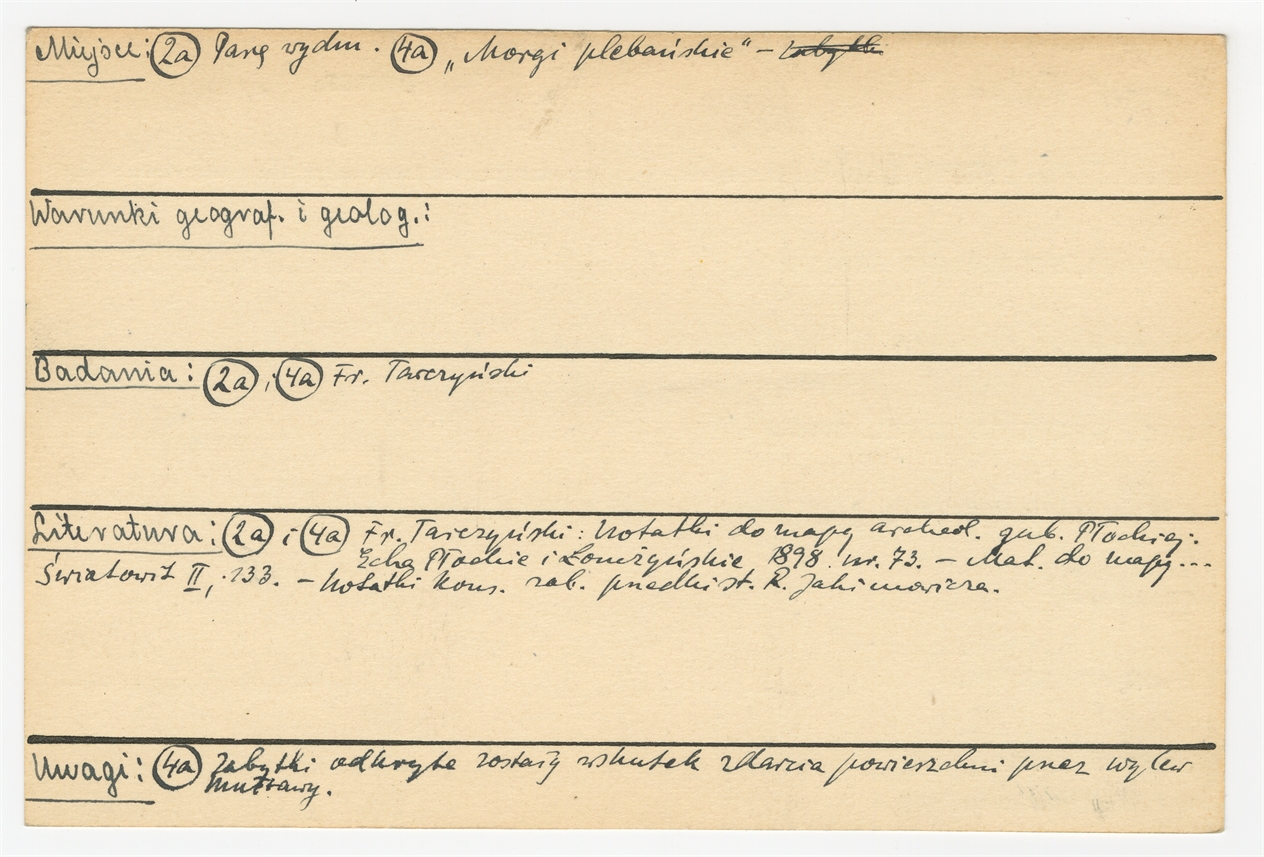 Miejsce: 2a Parę wydm. 4a „Morgi plebańskie" –
Warunki geograf. i geolog.:
Badania: 2a i 4a Fr. Tarczyński
Literatura: 2a i 4a Fr. Tarczyński: Notatki do mapy archeol. gub. Płockiej.
Echa Płockie i Łomżyńskie, 1898. nr. 73. – Mat. do mapy...
Światowit II, 133. – Notatki kons. zab. przedhist. R. Jakimowicza.
Uwagi: 4a Zabytki odkryte zostały wskutek zdarcia powierzchni przez wylew